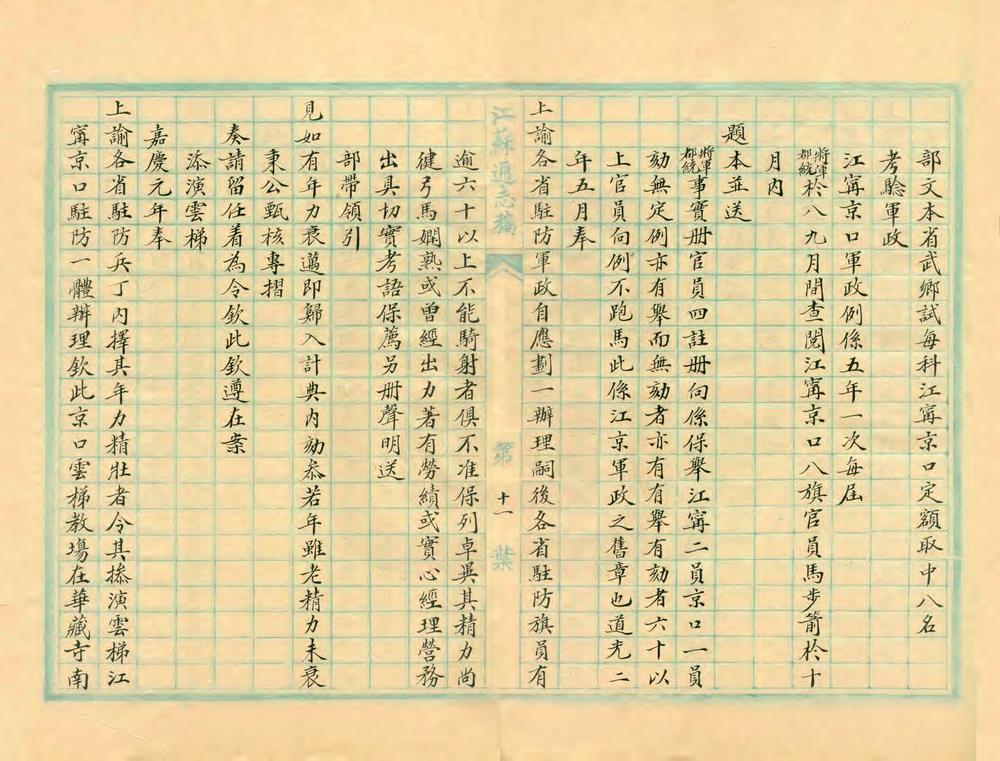 部文本省武鄉試每科江寗京口定額取中八名
考騐軍政
江寗京口軍政例係五年一次每屆
將軍都統於八九月間查閱江寗京口八旗官員馬步箭於十
月內
題本並送
將軍都統事實册官員四註册向係保舉江寗二員京口一員
劾無定例亦有舉而無劾者亦有有舉有劾者六十以
上官員向例不跑馬此係江京軍政之舊章也道光二
年五月奉
上諭各省駐防軍政自應劃一辦理嗣後各省駐防旗員有
江蘇通志稿
第十一葉
逾六十以上不能騎射者俱不准保列卓異其精力尚
健弓馬嫻熟或曾經出力著有勞績或實心經理營務
出具切實考語保薦另册聲明送
部帶領引
見如有年力衰邁即歸入計典內劾叅若年雖老精力未衰
秉公甄核專摺
奏請留任着為令欽此欽遵在案
添演雲梯
嘉慶元年奉
上諭各省駐防兵丁內擇其年力精壯者令其摻演雲梯江
寗京口駐防一體辦理欽此京口雲梯教塲在華藏寺南